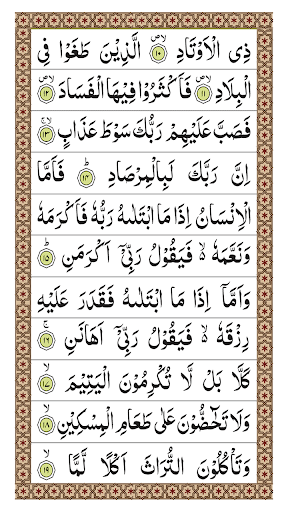 ذِی الْاَوْتَادِ ۝۱۰ الَّذِیْنَ طَغَوْا فِی
الْبِلَادِ ۝۱۱ فَاَكْثَرُوْا فِیْهَا الْفَسَادَ ۝۱۲
فَصَبَّ عَلَیْهِمْ رَبُّكَ سَوْطَ عَذَابٍ ۝۱۳
اِنَّ رَبَّكَ لَبِالْمِرْصَادِ ۝۱۴ فَاَمَّا
الْاِنْسَانُ اِذَا مَا ابْتَلٰىهُ رَبُّهٗ فَاَكْرَمَهٗ
وَنَعَّمَهٗ ۙ فَیَقُوْلُ رَبِّیْۤ اَكْرَمَنِ ۝۱۵
وَاَمَّاۤ اِذَا مَا ابْتَلٰىهُ فَقَدَرَ عَلَیْهِ
رِزْقَهٗ ۙ فَیَقُوْلُ رَبِّیْۤ اَهَانَنِ ۝۱۶
كَلَّا بَلْ لَّا تُكْرِمُوْنَ الْیَتِیْمَ ۝۱۷
وَلَا تَحٰٓضُّوْنَ عَلٰی طَعَامِ الْمِسْكِیْنِ ۝۱۸
وَتَاْكُلُوْنَ التُّرَاثَ اَكْلًا لَّمًّا ۝۱۹